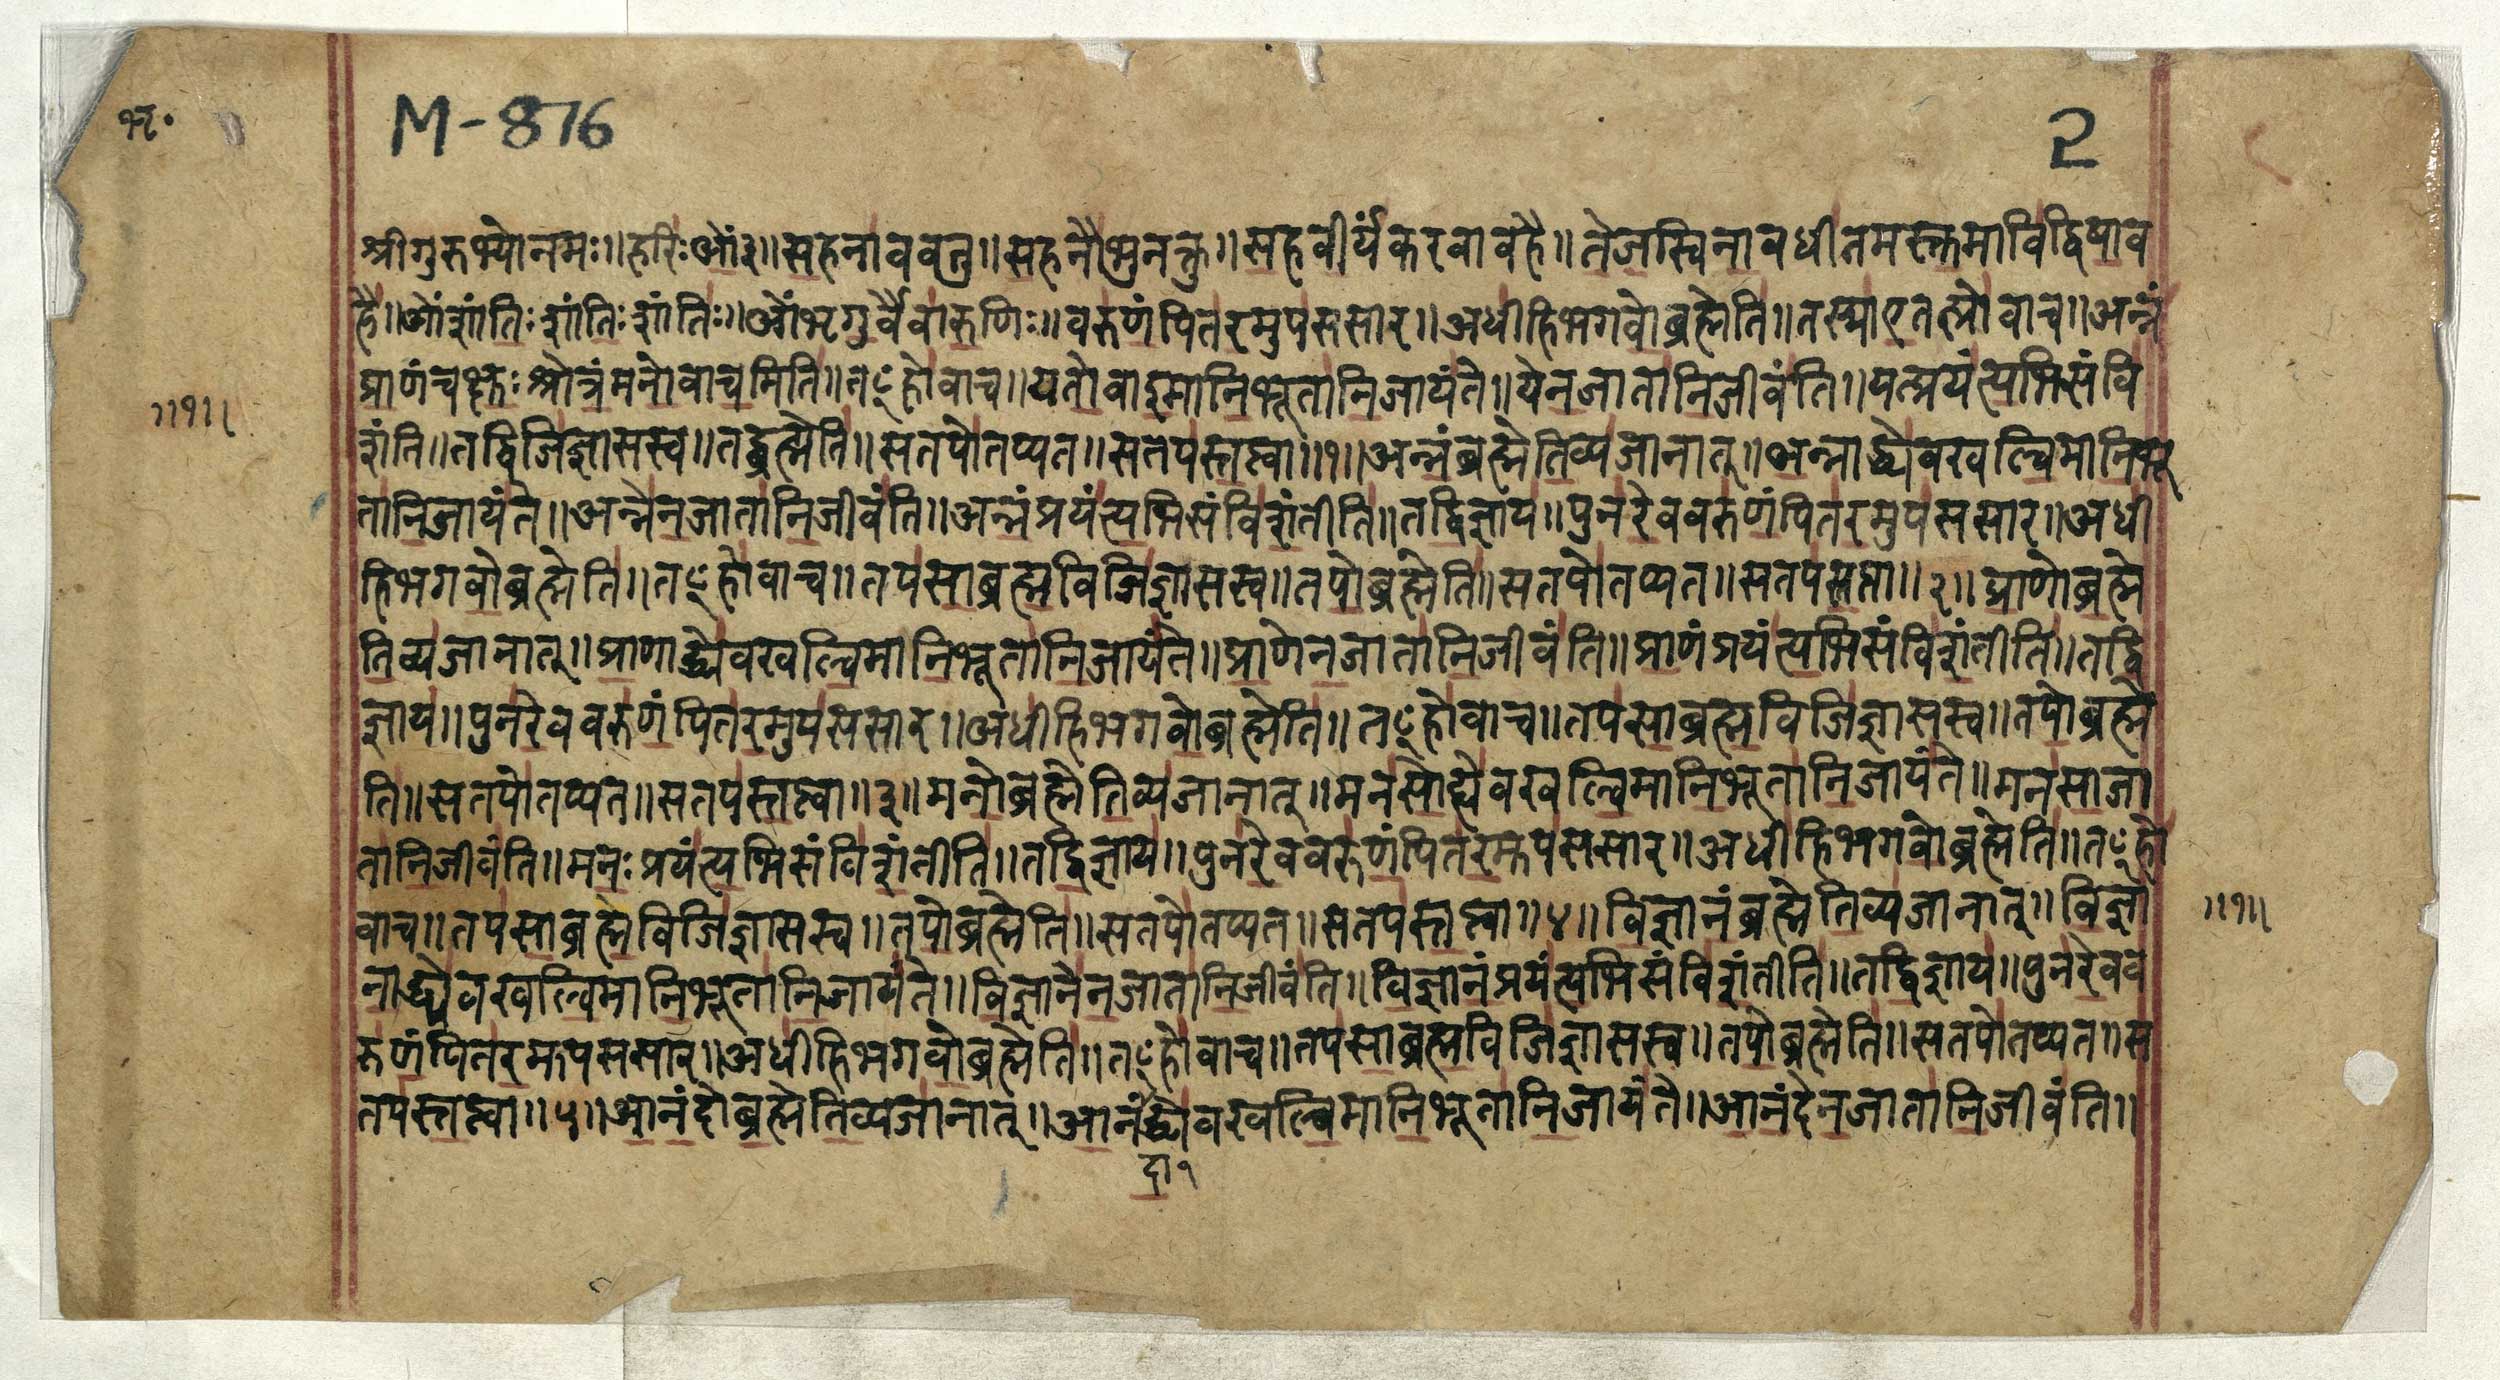 भृ॰
M-876
2
श्रीगुरुभ्योनमः॥हरिःओं३॥सहनाववतु॥सहनौभुनक्तु॥सहवीर्यंकरवावहै॥तेजस्विनावधीतमस्तुमाविद्विषाव
है॥ओंशांतिःशांतिःशांतिः॥ओंभृगुर्वैवारुणिः॥वरुणंपितरमुपससार॥अधीहिभगवोब्रह्मेति॥तस्माएतत्प्रोवाच॥अन्नं
प्राणंचक्षुःश्रोत्रंमनोवाचमिति॥तꣳहोवाच॥यतोवाइमानिभूतानिजायंते॥येनजातानिजीवंति॥यत्प्रयंत्यभिसंवि
शंति॥तद्विजिज्ञासस्व॥तद्ब्रह्मेति॥सतपोतप्यत॥सतपस्तप्त्वा॥१॥अन्नंब्रह्मेतिव्यजानात्॥अन्नाद्ध्येवखल्विमानिभू
तानिजायंते॥अन्नेनजातानिजीवंति॥अन्नंप्रयंत्यभिसंविशंतीति॥तद्विज्ञाय॥पुनरेववरुणंपितरमुपससार॥अधी
हिभगवोब्रह्मेति॥तꣳहोवाच॥तपसाब्रह्मविजिज्ञासस्व॥तपोब्रह्मेति॥सतपोतप्यत॥सतपस्तप्त्वा॥२॥प्राणोब्रह्मे
तिव्यजानात्॥प्राणाद्ध्येवखल्विमानिभूतानिजायंते॥प्राणेनजातानिजीवंति॥प्राणंप्रयंत्यभिसंविशंतीति॥तद्वि
ज्ञाय॥पुनरेववरुणंपितरमुपससार॥अधीहिभगवोब्रह्मेति॥तꣳहोवाच॥तपसाब्रह्मविजिज्ञासस्व॥तपोब्रह्मे
ति॥सतपोतप्यत॥सतपस्तप्त्वा॥३॥मनोब्रह्मेतिव्यजानात्॥मनसोह्येवखल्विमानिभूतानिजायंते॥मनसाजा
तानिजीवंति॥मनःप्रयंत्यभिसंविशंतीति॥तद्विज्ञाय॥पुनरेववरुणंपितरमुपससार॥अधीहिभगवोब्रह्मेति॥तꣳहो
वाच॥तपसाब्रह्मविजिज्ञासस्व॥तपोब्रह्मेति॥सतपोतप्यत॥सतपस्तप्त्वा॥४॥विज्ञानंब्रह्मेतिव्यजानात्॥विज्ञा
नाद्ध्येवखल्विमानिभूतानिजायंते॥विज्ञानेनजातानिजीवंति॥विज्ञानंप्रयंत्यभिसंविशंतीति॥तद्विज्ञाय॥पुनरेवव
रुणंपितरमुपससार॥अधीहिभगवोब्रह्मेति॥तꣳहोवाच॥तपसाब्रह्मविजिज्ञासस्व॥तपोब्रह्मेति॥सतपोतप्यत॥स
तपस्तप्त्वा॥५॥आनंदोब्रह्मेतिव्यजानात्॥आनंद्ध्येवखल्विमानिभूतानिजायंते॥आनंदेनजातानिजीवंति॥
दा१
॥१॥
॥१॥